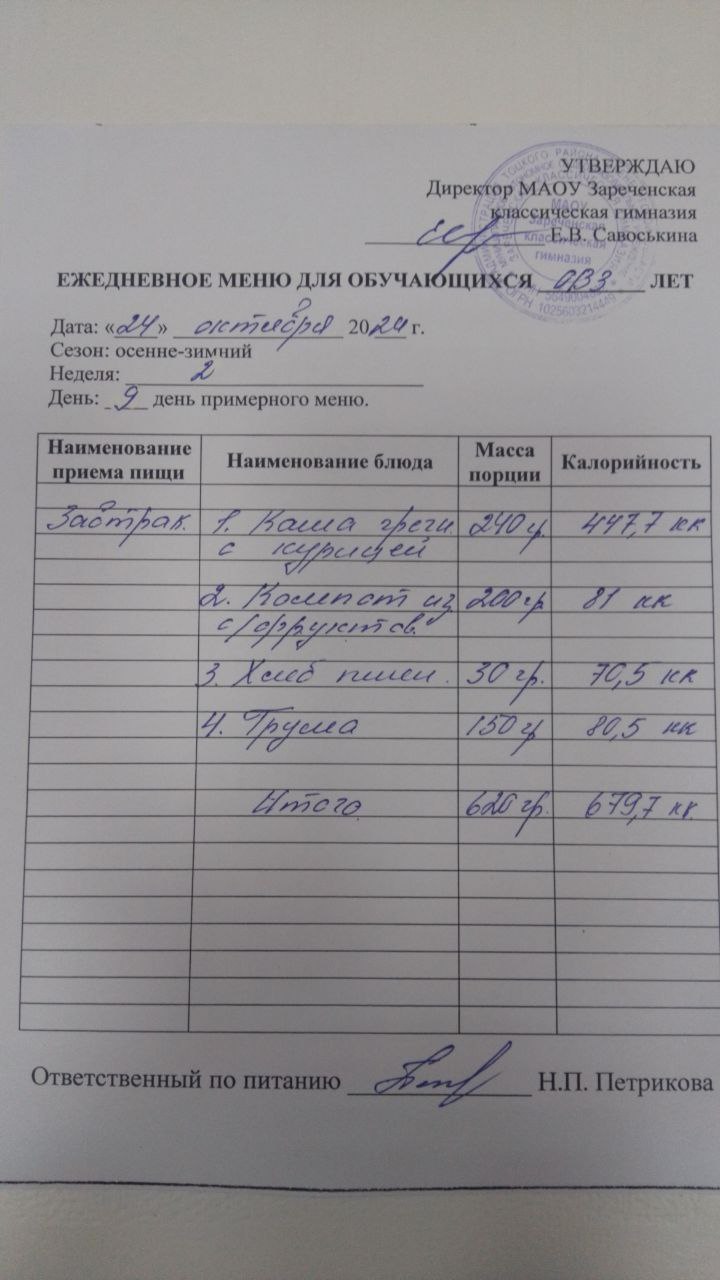 УТВЕРЖДАЮ
Директор МАОУ Зареченская
классическая гимназия
Е.В. Савоськина
МАОУ
Зареченская
классическая
гимназия
ОГРН 1025603214449
ЕЖЕДНЕВНОЕ МЕНЮ ДЛЯ ОБУЧАЮЩИХСЯ ОВЗ ЛЕТ
Дата: «24» октября 2024 г.
Сезон: осенне-зимний
Неделя: 2
День: 9 день примерного меню.
Наименование приема пищи Наименование блюда Масса порции Калорийность
Завтрак. 1. Каша гречн. 240 гр. 447,7 кк
с курицей
2. Компот из 200 гр 81 кк
с/фруктов.
3. Хлеб пшен. 30 гр. 70,5 кк
4. Груша 150 гр 80,5 кк
Итого 620 гр. 679,7 кк.
Ответственный по питанию Н.П. Петрикова